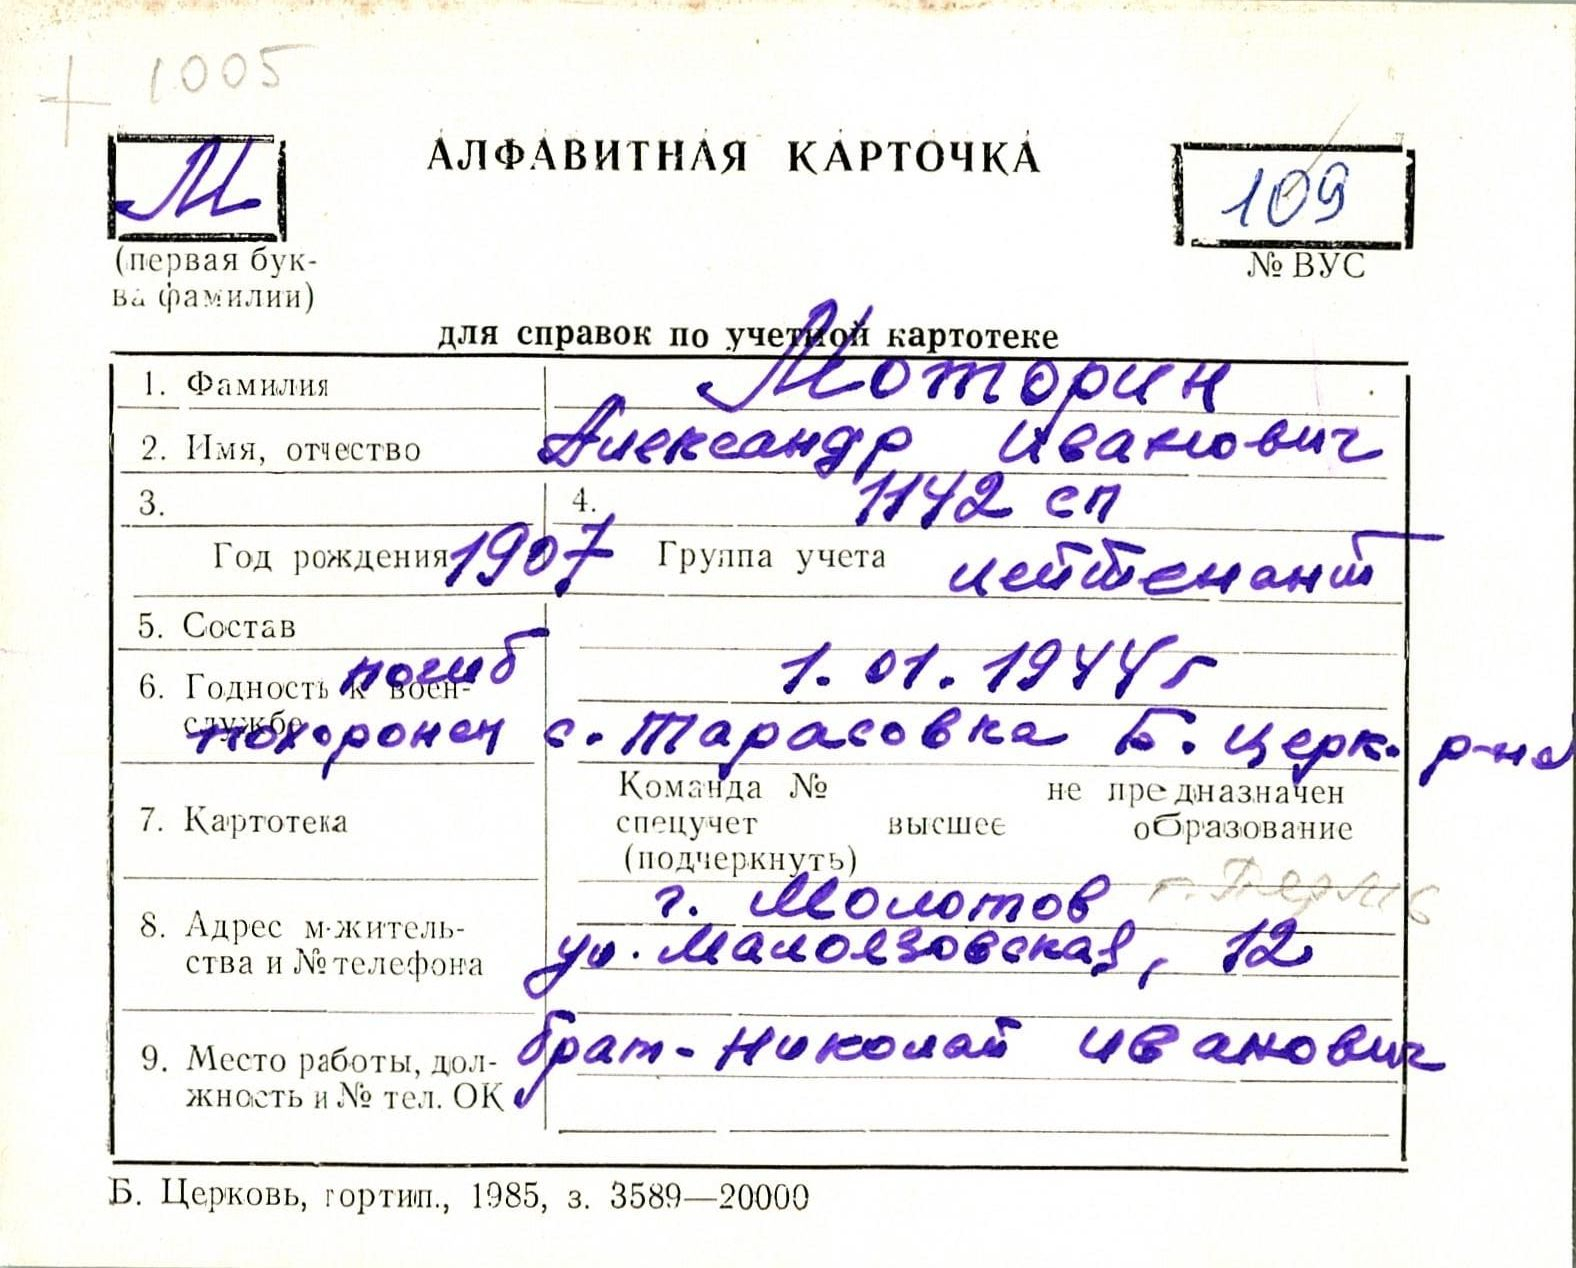 + 1005
М
АЛФАВИТНАЯ КАРТОЧКА
109
(первая бук-
ва фамилии)
№ ВУС
для справок по учетной картотеке
1. Фамилия Моторин
2. Имя, отчество Александр Иванович
3. 4. 1142 сп
Год рождения 1907 Группа учета лейтенант
5. Состав
погиб 1.01.1944 г
6. Годность к воен-
службе
похоронен с. Тарасовка Б. Церк. р-на
Команда № не предназначен
7. Картотека спецучет высшее образование
(подчеркнуть)
г. Молотов г. Пермь
8. Адрес м-житель-
ства и № телефона ул. , 12
9. Место работы, дол- брат - Николай Иванович
жность и № тел. ОК
Б. Церковь, гортип., 1985, з. 3589—20000